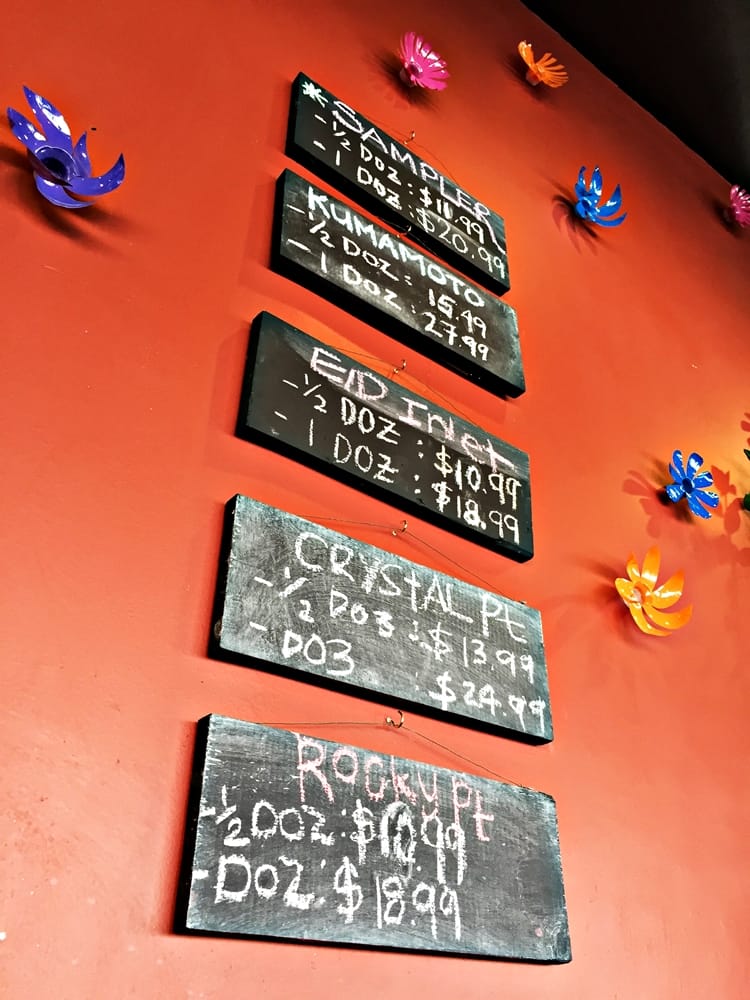 * SAMPLER
- 1/2 DOZ : $11.99
- 1 DOZ : $20.99
KUMAMOTO
- 1/2 DOZ : 15.49
- 1 DOZ : 27.99
ElD Inlet
- 1/2 DOZ : $10.99
- 1 DOZ : $18.99
CRYStAL Pt
- 1/2 DO3 : $13.99
- DO3 : $24.99
Rocky Pt
- 1/2 DOZ : $10.99
- DOZ : $18.99